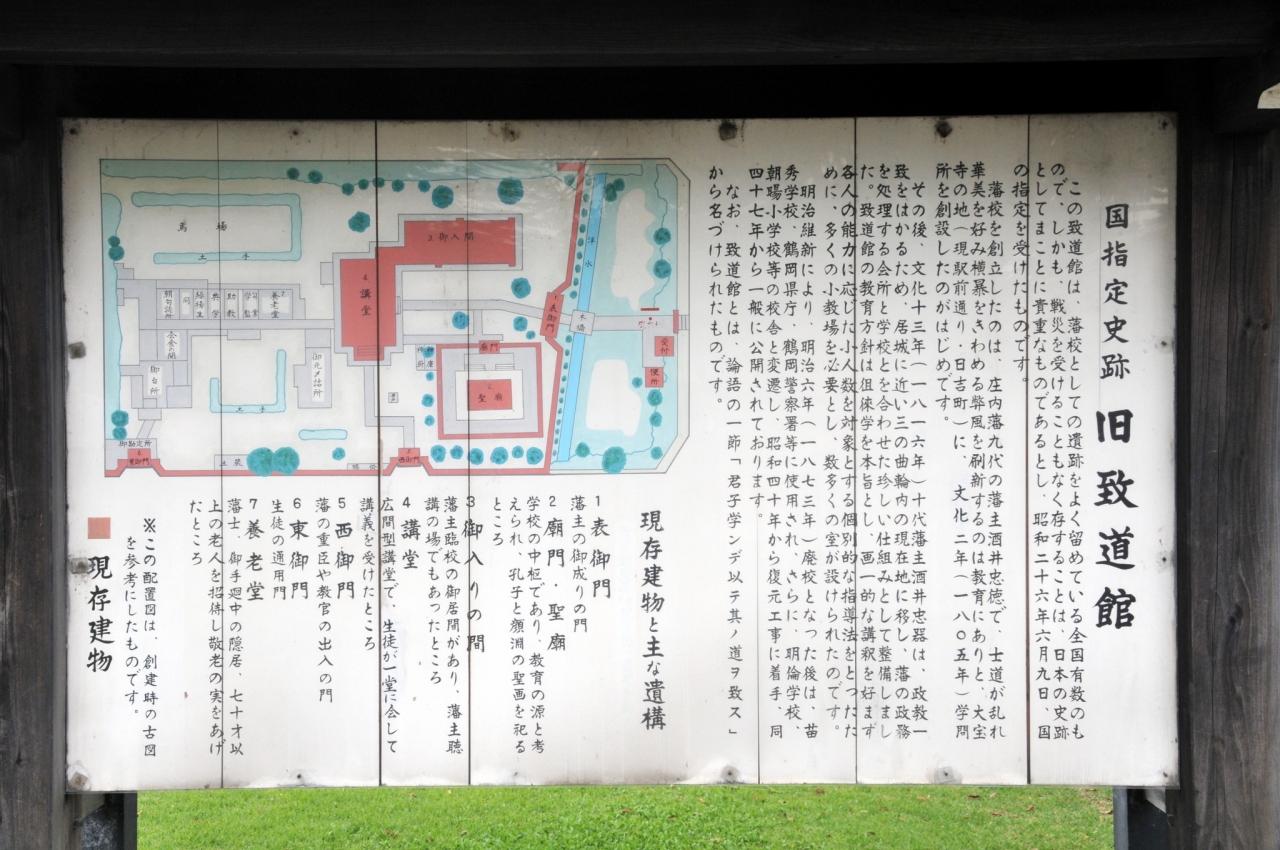 国指定史跡 旧致道館
この致道館は、藩校としての遺跡をよく留めている全国有数のも
ので、しかも、戦災を受けることもなく存することは、日本の史跡
としてまことに貴重なものであるとし、昭和二十六年六月九日、国
の指定を受けたものです。
藩校を創立したのは、庄内藩九代の藩主酒井忠徳で、士道が乱れ
華美を好み横暴をきわめる弊風を刷新するのは教育にありと、大宝
寺の地(現駅前通り・日吉町)に、文化二年(一八〇五年)学問
所を創設したのがはじめです。
その後、文化十三年(一八一六年)十代藩主酒井忠器は、政教一
致をはかるため、居城に近い三の曲輪内の現在地に移し、藩の政務
を処理する会所と学校とを合わせた珍しい仕組みとして整備しまし
た。致道館の教育方針は徂徠学を本旨とし、画一的な講釈を好まず
各人の能力に応じた小人数を対象とする個別的な指導法をとったた
めに、多くの小教場を必要とし、数多くの室が設けられたのです。
明治維新により、明治六年(一八七三年)廃校となった後は、苗
秀学校、鶴岡県庁、鶴岡警察署等に使用され、さらに、明倫学校、
朝暘小学校等の校舎と変遷し、昭和四十年から復元工事に着手、同
四十七年から一般に公開されております。
なお、致道館とは、論語の一節「君子学ンデ以テ其ノ道ヲ致ス」
から名づけられたものです。
現存建物と主な遺構
1 表御門
藩主の御成りの門
2 廟門・聖廟
学校の中枢であり、教育の源と考
えられ、孔子と顔淵の聖画を祀る
ところ
3 御入りの間
藩主臨校の御居間があり、藩主聴
講の場でもあったところ
4 講堂
広間型講堂で、生徒が一堂に会して
講義を受けたところ
5 西御門
藩の重臣や教官の出入の門
6 東御門
生徒の通用門
7 養老堂
藩士、御手廻中の隠居、七十才以
上の老人を招待し敬老の実をあげ
たところ
※この配置図は、創建時の古図
を参考にしたものです。
現存建物
馬場
土手
3.御入間
4.講堂
7養老堂
学監
助教
典学
同
御台所
御元〆詰所
土手
御勘定所
6東御門
5西御門
廟門
2.聖廟
1表御門
木橋
洋水
受付
便所